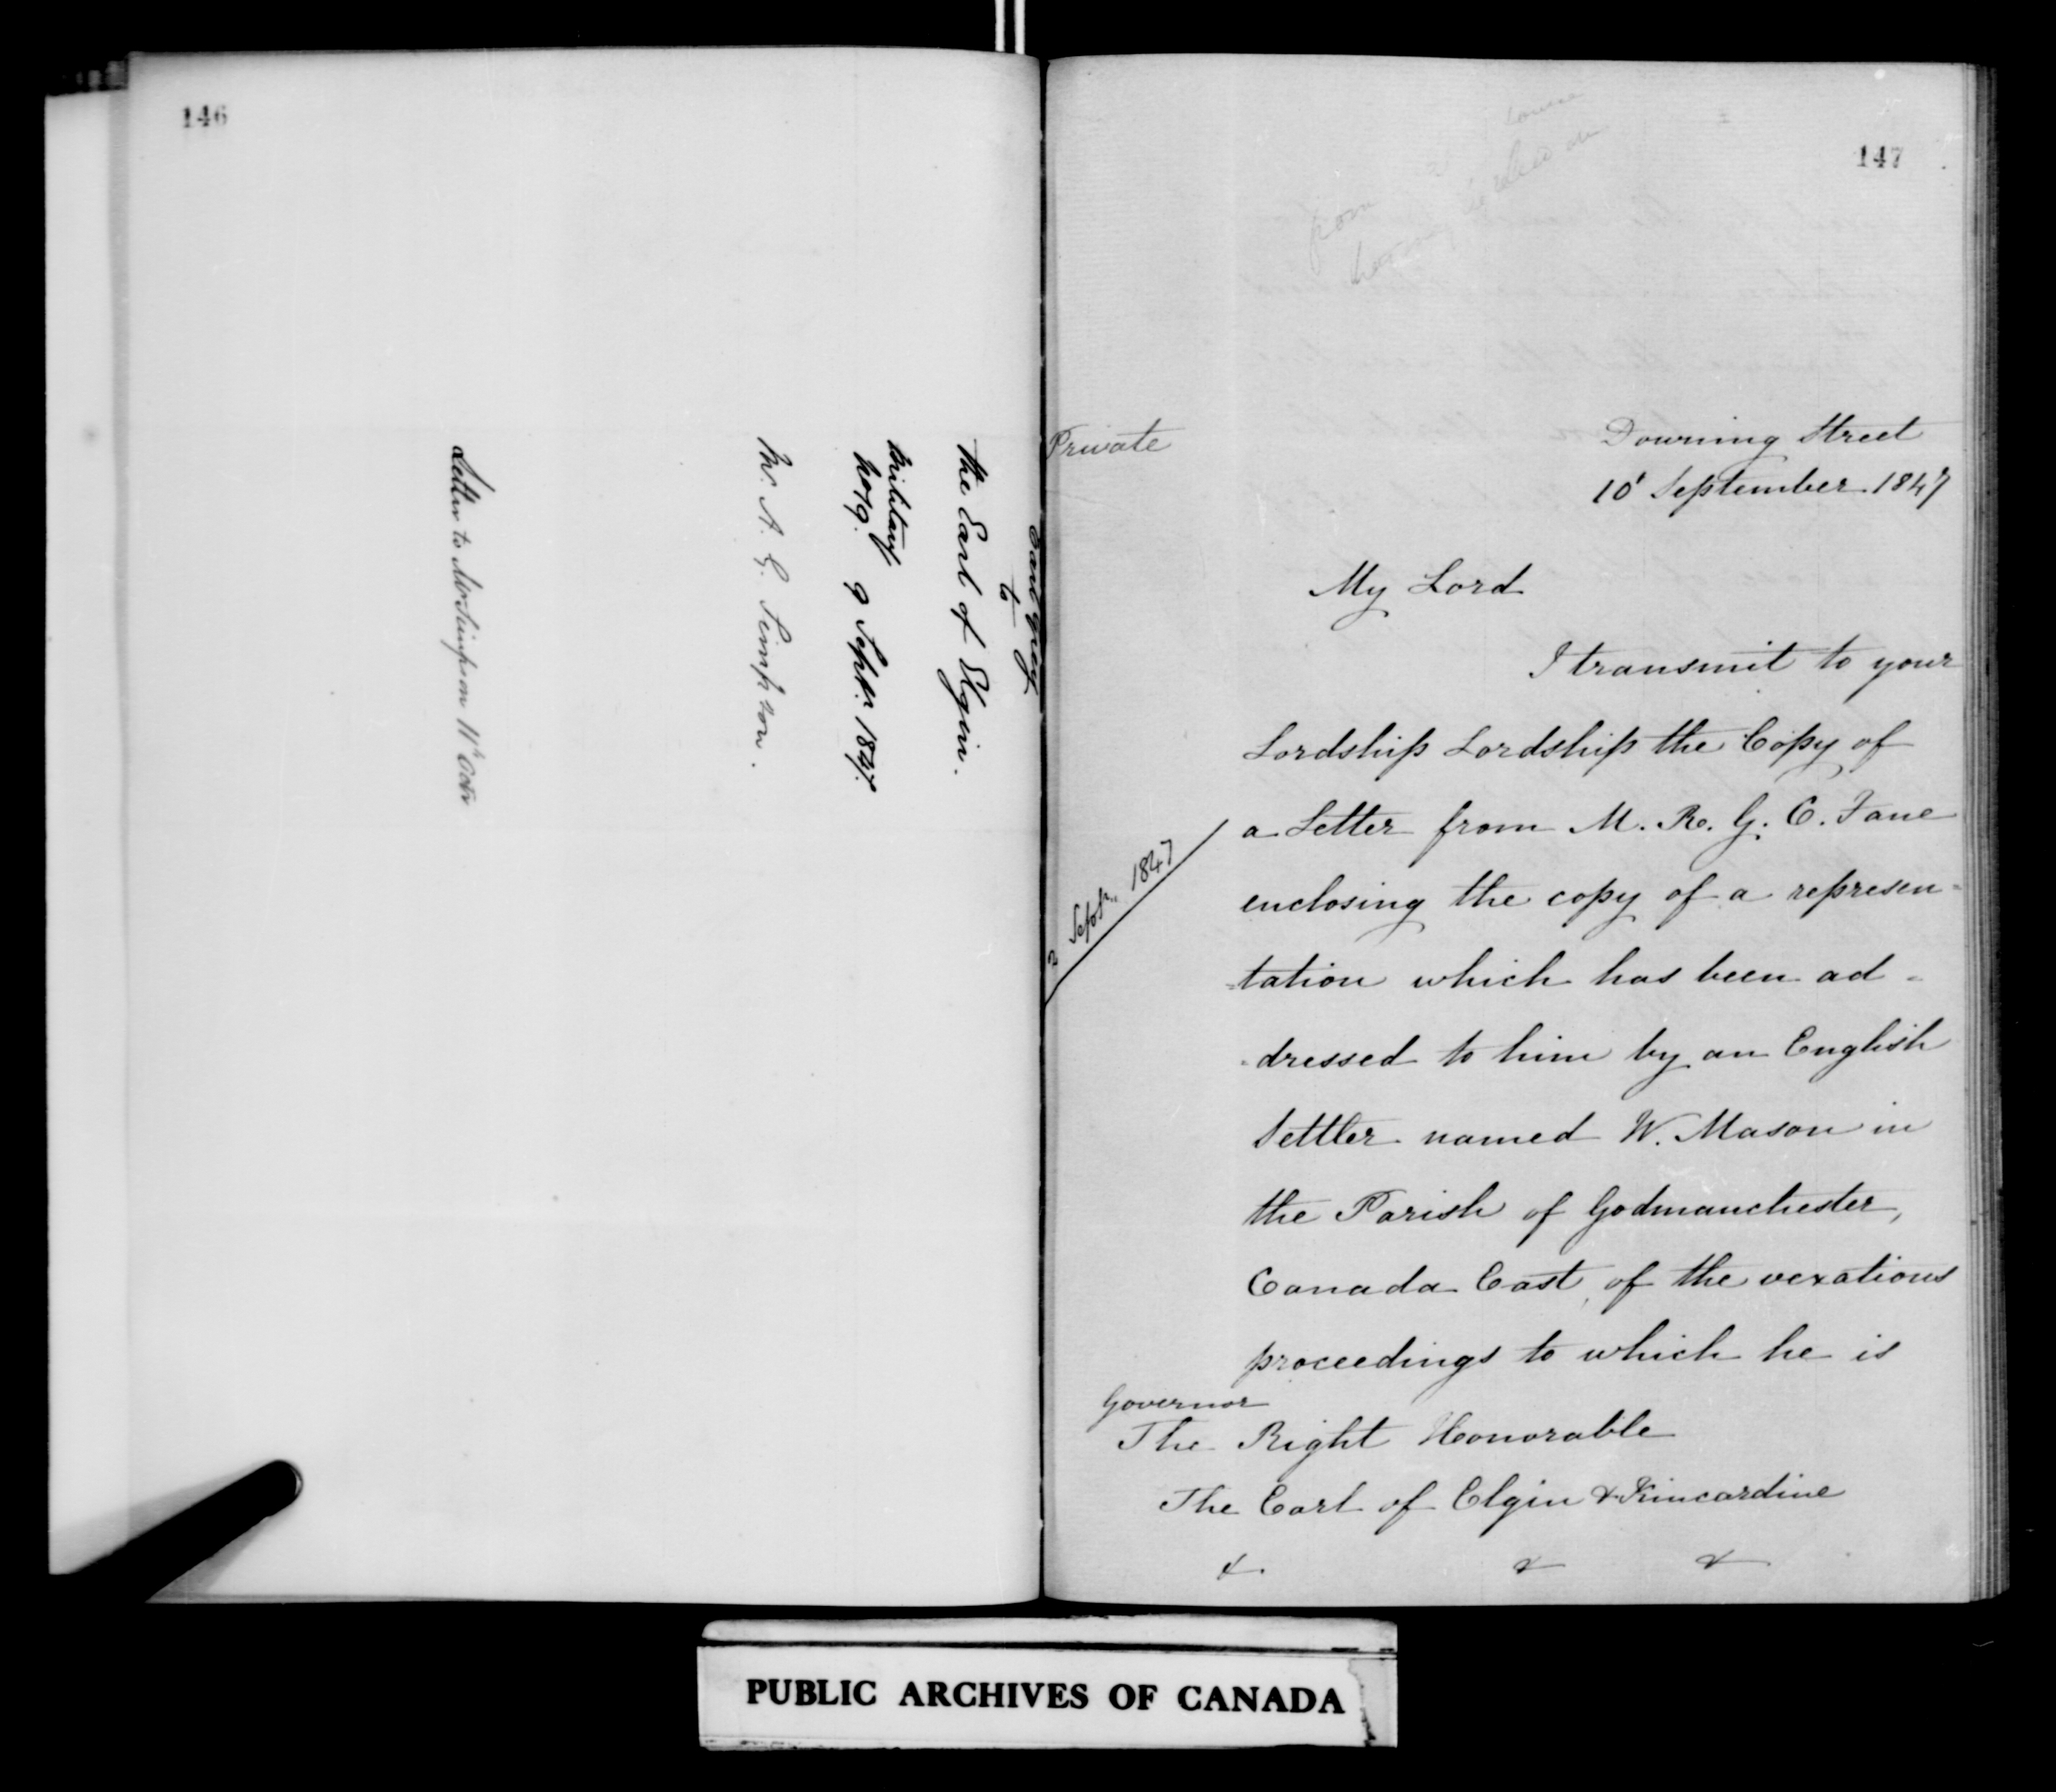 146
Earl Grey
to
The Earl of Elgin.
Military
No 19. 9 Septr. 1847.
Mr. A. G. Simpson.
Letter to Mr Simpson 11th Octr
147
Private
Downing Street
10' September 1847
My Lord
I transmit to your
Lordship Lordship the Copy of
a Letter from M. R. G. C. Fane
2 Sept. 1847
enclosing the copy of a represen=
=tation which has been ad=
-dressed to him by an English
Settler named W. Mason in
the Parish of Godmanchester,
Canada East, of the vexatious
proceedings to which he is
Governor
The Right Honorable
The Earl of Elgin & Kincardine
& & &
PUBLIC ARCHIVES OF CANADA